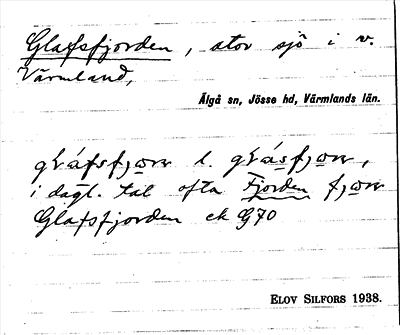 Glafsfjorden, stor sjö i v.
Värmland,
Älgå sn, Jösse hd, Värmlands län.
i dagl. tal ofta Fjorden
Glafsfjorden ek G70
ELOV SILFORS 1938.